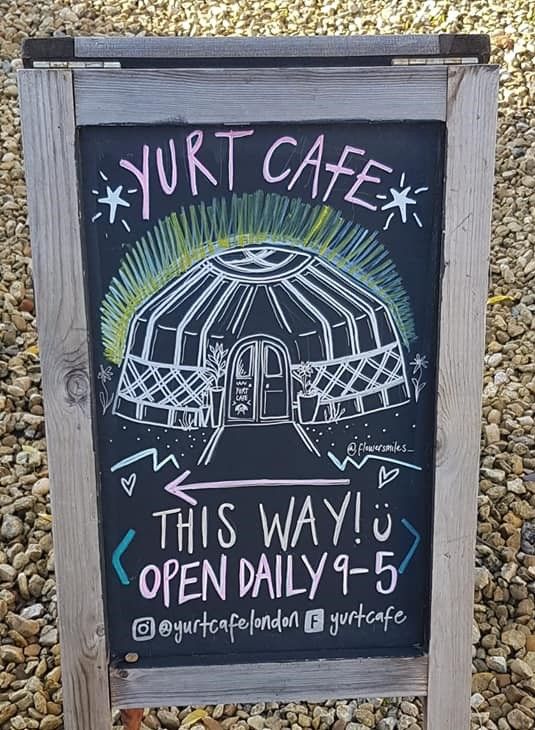 YURT CAFE
YURT
CAFE
@flowersmiles_
THIS WAY! ü
OPEN DAILY 9-5
@yurtcafelondon F yurtcafe